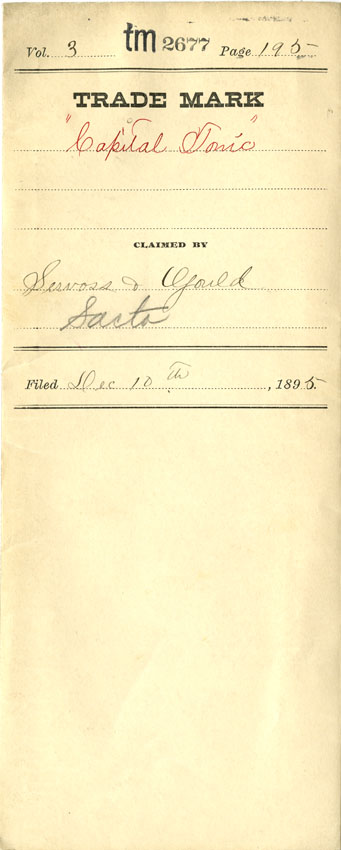 Vol. 3 tm 2677 Page 195
TRADE MARK
"Capital Tonic"
CLAIMED BY
Servoss & Gould
Sacto
Filed Dec 10th, 1895.